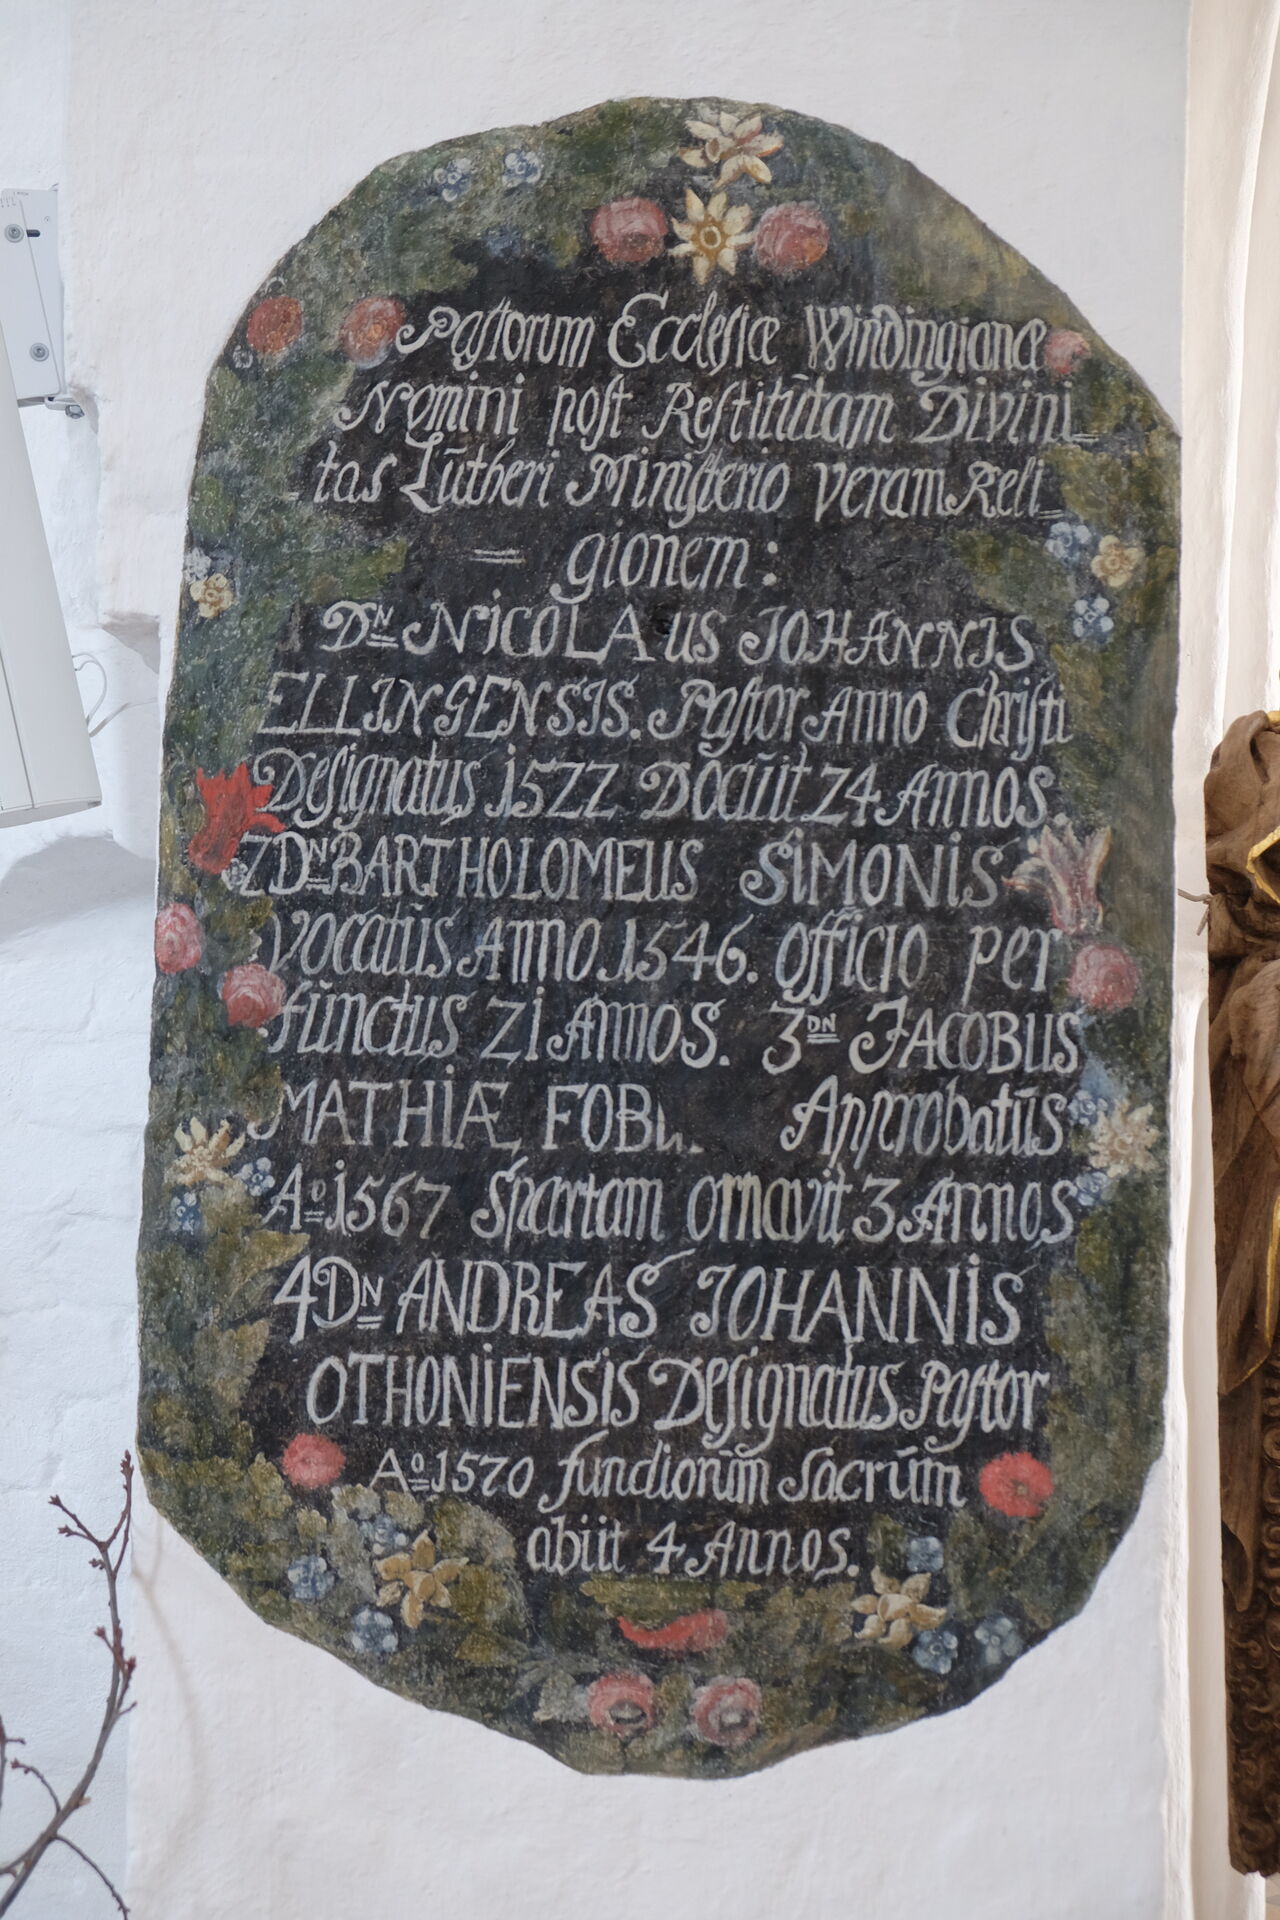 Pastorum Ecclesiæ Windingianæ
Nomini post Restitūtam Divini_
_tas Lūtheri Ministerio veram Reli_
= gionem:
DN NICOLAus JOHANNIS
ELLINGENSIS. Pastor Anno Christi
Designatus 1522 Docūit 24 Annos.
2 DN BARTHOLOMEUS SIMONIS
Vocatūs Anno 1546. officio per
fūnctus 21 Annos. 3 DN JACOBUS
MATHIÆ Approbatūs
Ao 1567 Spartam ornavit 3 Annos
4 DN ANDREAS JOHANNIS
OTHONIENSIS Designatus Pastor
Ao 1570 fundionūm Sacrūm
abiit 4 Annos.